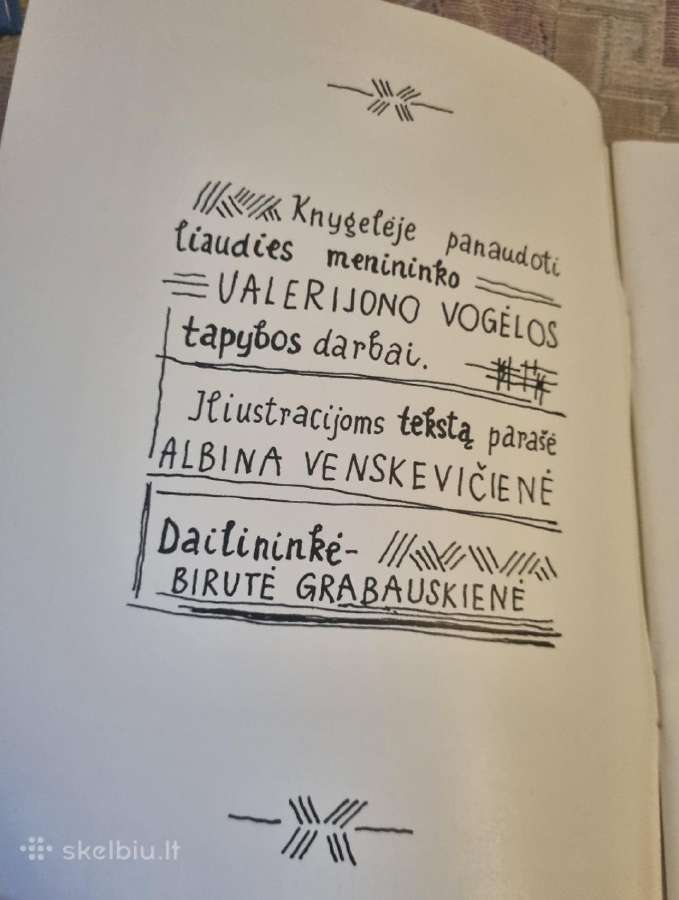 Knygelėje panaudoti
liaudies menininko
VALERIJONO VOGĖLOS
tapybos darbai.
Iliustracijoms tekstą parašė
ALBINA VENSKEVIČIENĖ
Dailininkė-
BIRUTĖ GRABAUSKIENĖ
skelbiu.lt